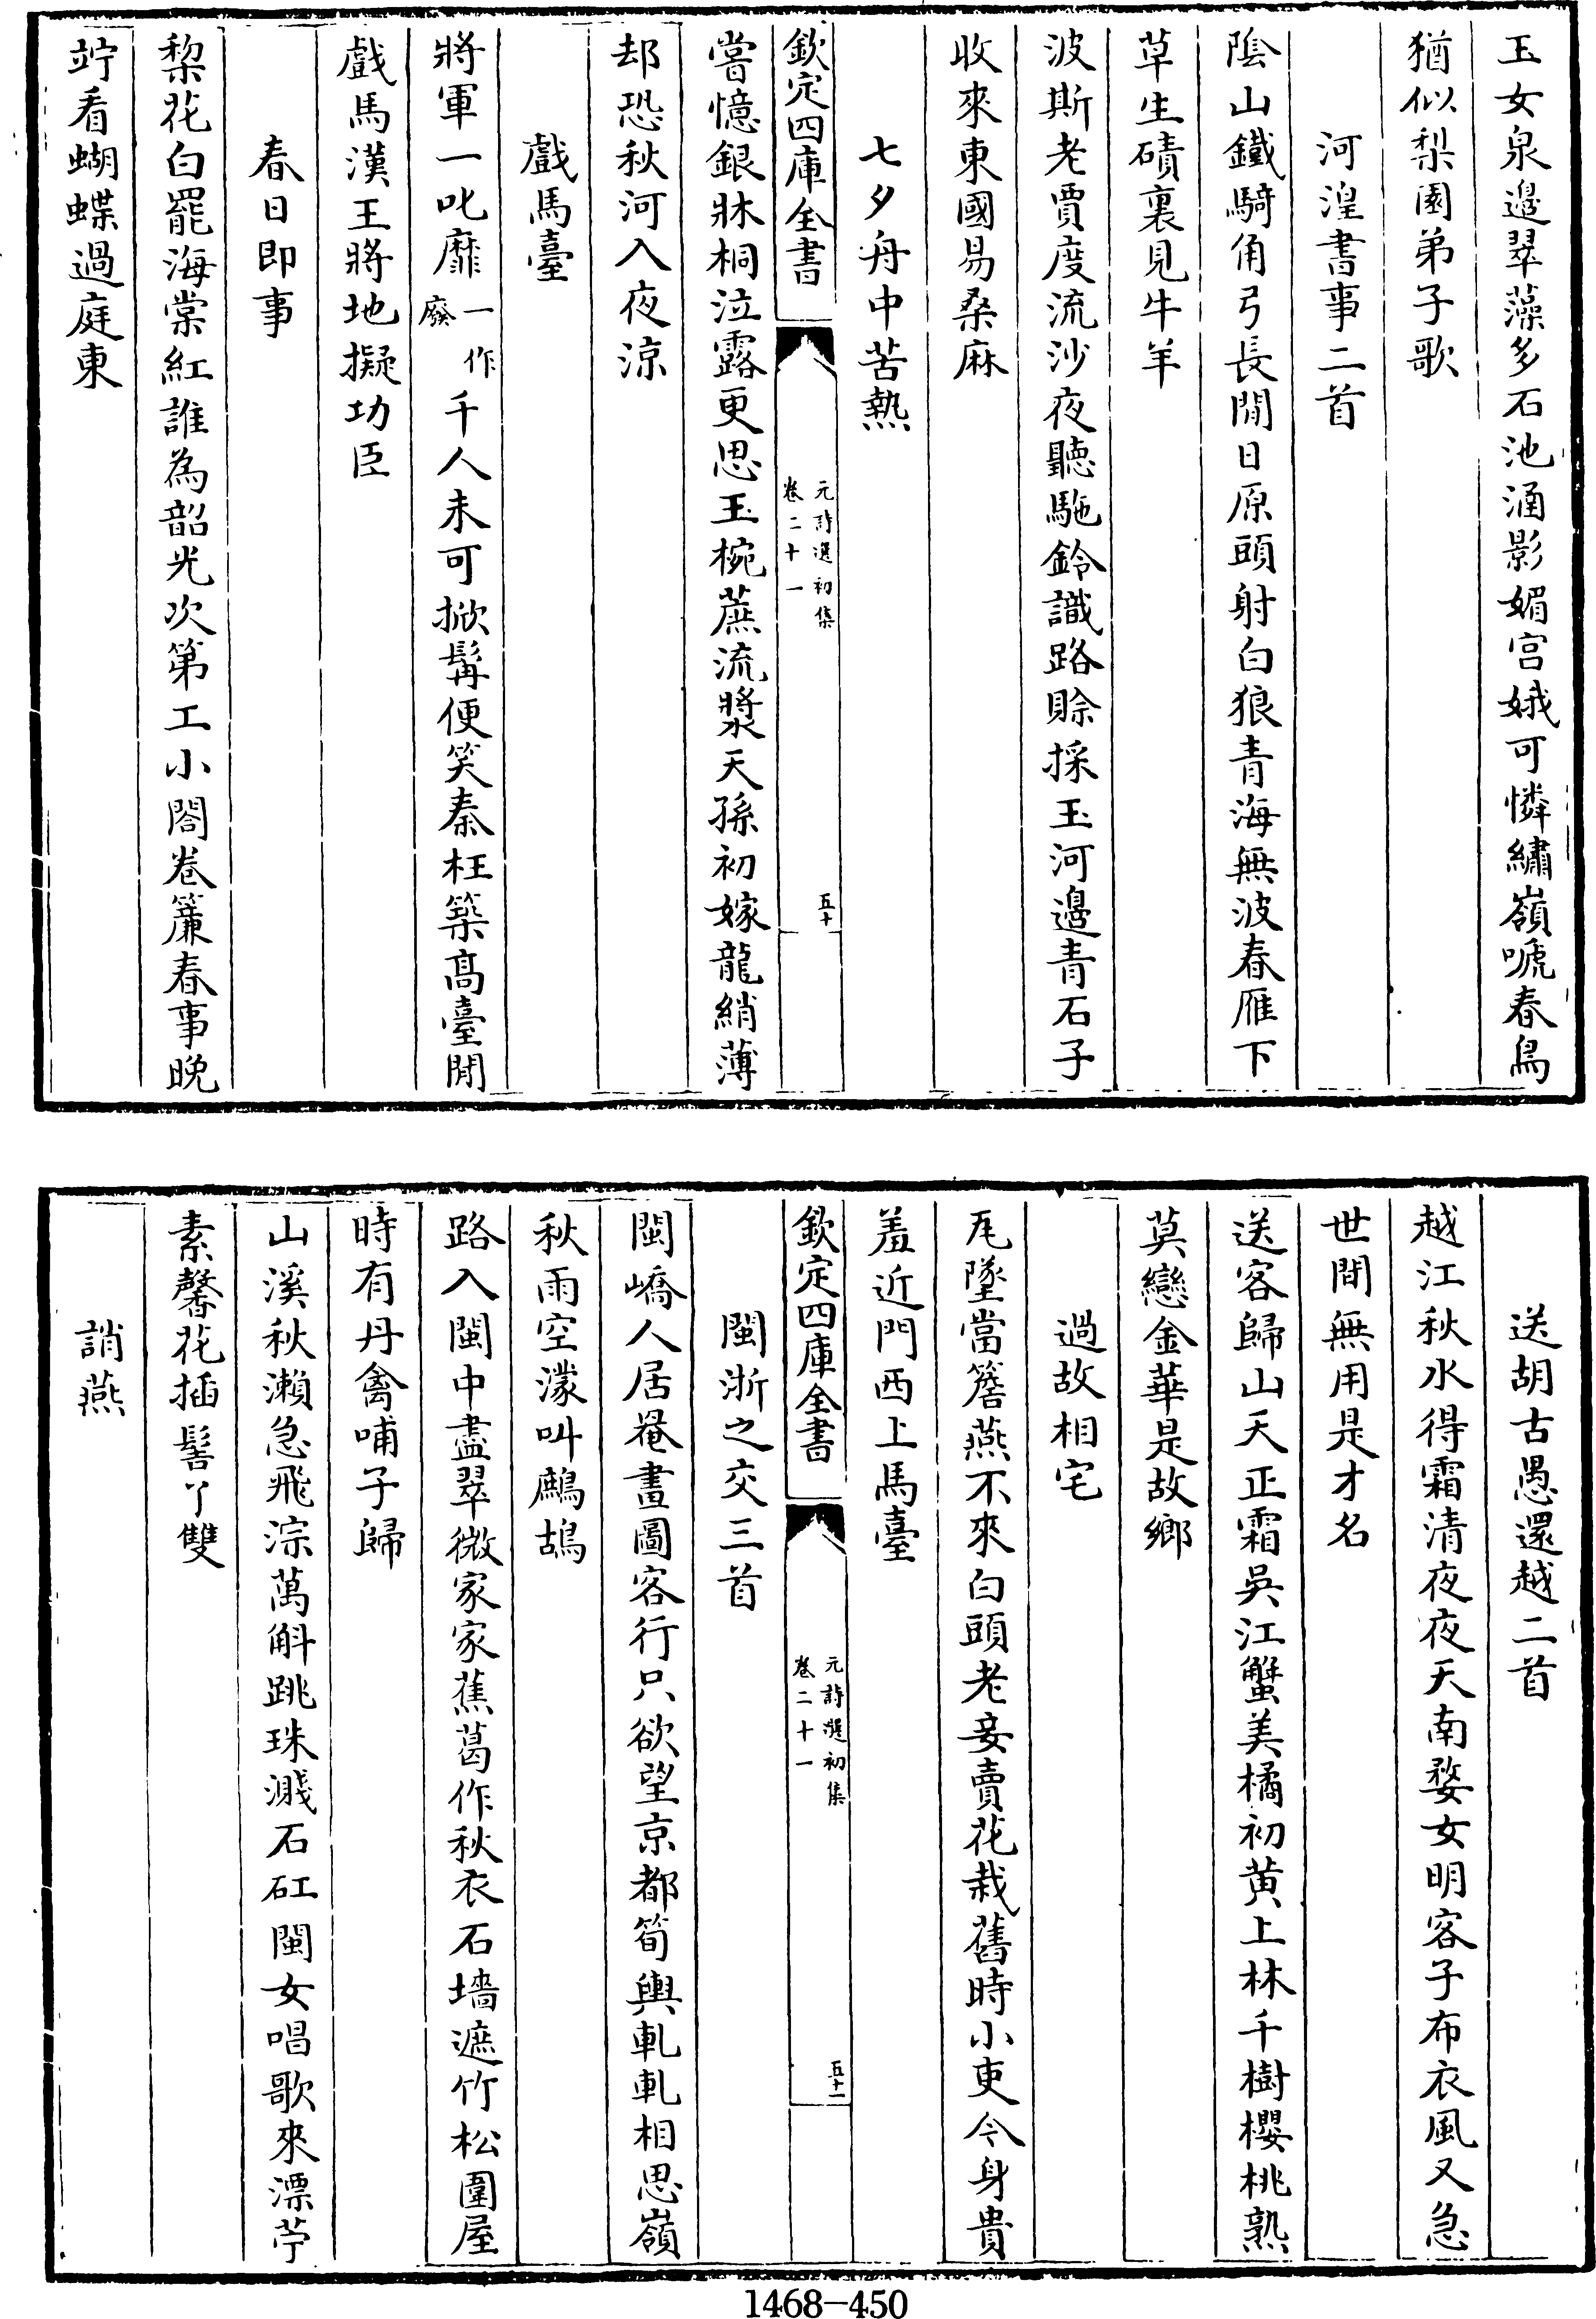 玉女泉邊翠藻多石池涵影媚宫娥可憐繡嶺嗁春鳥
猶似梨園弟子歌
河湟書事二首
陰山鐵騎角弓長閒日原頭射白狼青海無波春雁下
草生磧裏見牛羊
波斯老賈度流沙夜聽駞鈴識路賖採玉河邊青石子
收來東國易桑麻
七夕舟中苦熱
欽定四庫全書
元詩選初集
卷二十一
五十
嘗憶銀牀桐泣露更思玉椀蔗流漿天孫初嫁龍綃薄
却恐秋河入夜涼
戲馬臺
將軍一叱靡一作廢千人未可掀髯便笑秦枉築髙臺閒
戲馬漢王將地擬功臣
春日即事
棃花白罷海棠紅誰為韶光次第工小閣卷簾春事晚
竚看蝴蝶過庭東
送胡古愚還越二首
越江秋水得霜清夜夜天南婺女明客子布衣風又急
世間無用是才名
送客歸山天正霜吳江蟹美橘初黄上林千樹櫻桃熟
莫戀金華是故鄉
過故相宅
瓦墜當簷燕不來白頭老妾賣花栽舊時小吏今身貴
羞近門西上馬臺
欽定四庫全書
元詩選初集
卷二十一
五十一
閩浙之交三首
閩嶠人居罨畫圖客行只欲望京都筍輿軋軋相思嶺
秋雨空濛叫鷓鴣
路入閩中盡翠微家家蕉葛作秋衣石墻遮竹松圍屋
時有丹禽哺子歸
山溪秋瀨急飛淙萬斛跳珠濺石矼閩女唱歌來漂苧
素馨花插髻丫雙
誚燕
1468-450